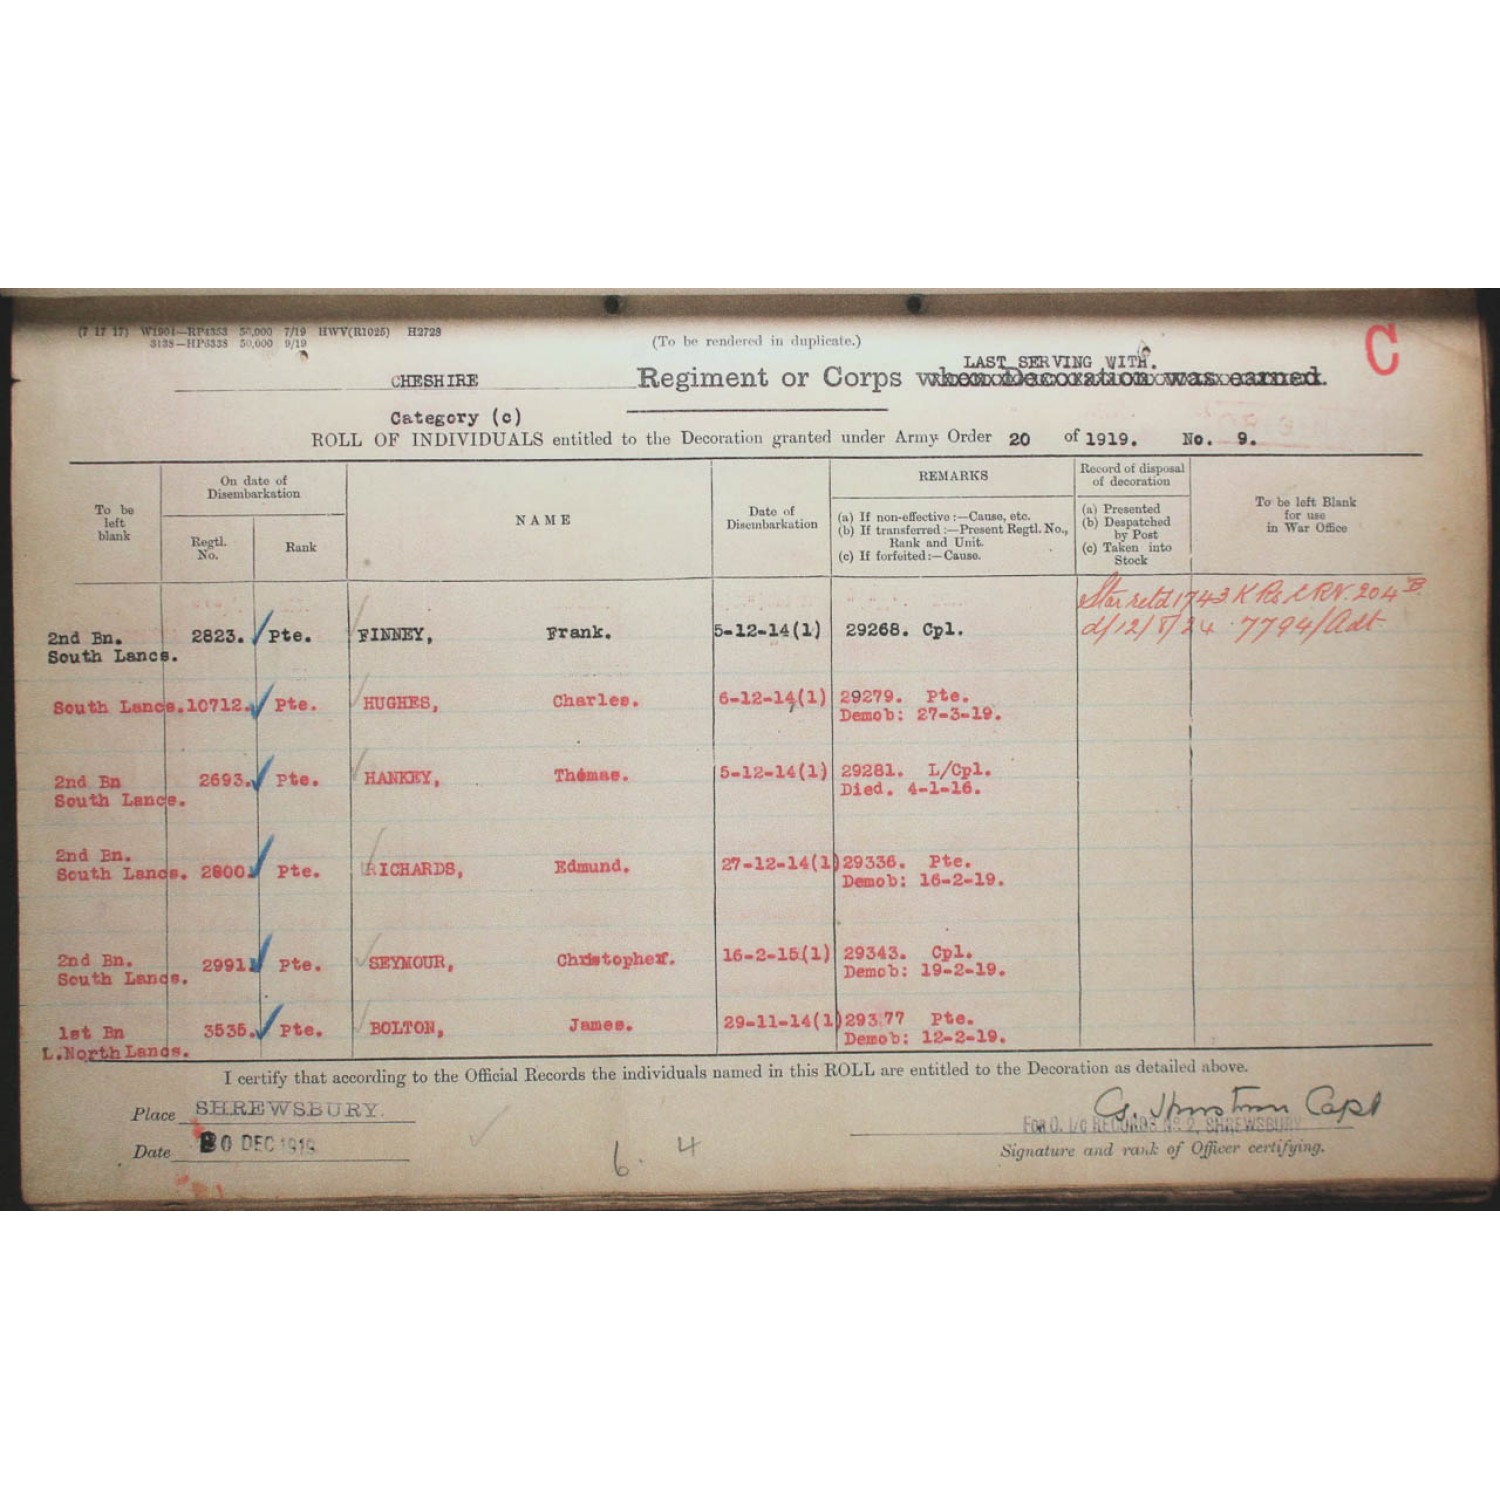 (7 17 17) W1904—RP4353 50,000 7/19 HWV(R1025) H2728
3138—HP6338 50,000 9/19
(To be rendered in duplicate.)
C
LAST SERVING WITH.
CHESHIRE Regiment or Corps when Decoration was earned.
Category (c)
ROLL OF INDIVIDUALS entitled to the Decoration granted under Army Order 20 of 1919. No. 9.
To be left blank
On date of Disembarkation
Regtl. No.
Rank
NAME
Date of Disembarkation
REMARKS
(a) If non-effective:—Cause, etc.
(b) If transferred:—Present Regtl. No., Rank and Unit.
(c) If forfeited:—Cause.
Record of disposal of decoration
(a) Presented
(b) Despatched by Post
(c) Taken into Stock
To be left Blank for use in War Office
Star retd 1743 K Rs 204 B.
d/12/8/24 7794/Adt
2nd Bn. 2823. Pte. FINNEY, Frank. 5-12-14(1) 29268. Cpl.
South Lancs.
South Lancs. 10712. Pte. HUGHES, Charles. 6-12-14(1) 29279. Pte.
Demob: 27-3-19.
2nd Bn 2693. Pte. HANKEY, Thomas. 5-12-14(1) 29281. L/Cpl.
South Lancs. Died. 4-1-16.
2nd Bn.
South Lancs. 2800. Pte. RICHARDS, Edmund. 27-12-14(1) 29336. Pte.
Demob: 16-2-19.
2nd Bn. 2991. Pte. SEYMOUR, Christopher. 16-2-15(1) 29343. Cpl.
South Lancs. Demob: 19-2-19.
1st Bn 3535. Pte. BOLTON, James. 29-11-14(1) 29377 Pte.
L.North Lancs. Demob: 12-2-19.
I certify that according to the Official Records the individuals named in this ROLL are entitled to the Decoration as detailed above.
Place SHREWSBURY.
Capt
FOR O. I/C RECORDS No 2, SHREWSBURY
Date 20 DEC 1919
Signature and rank of Officer certifying.
6. 4